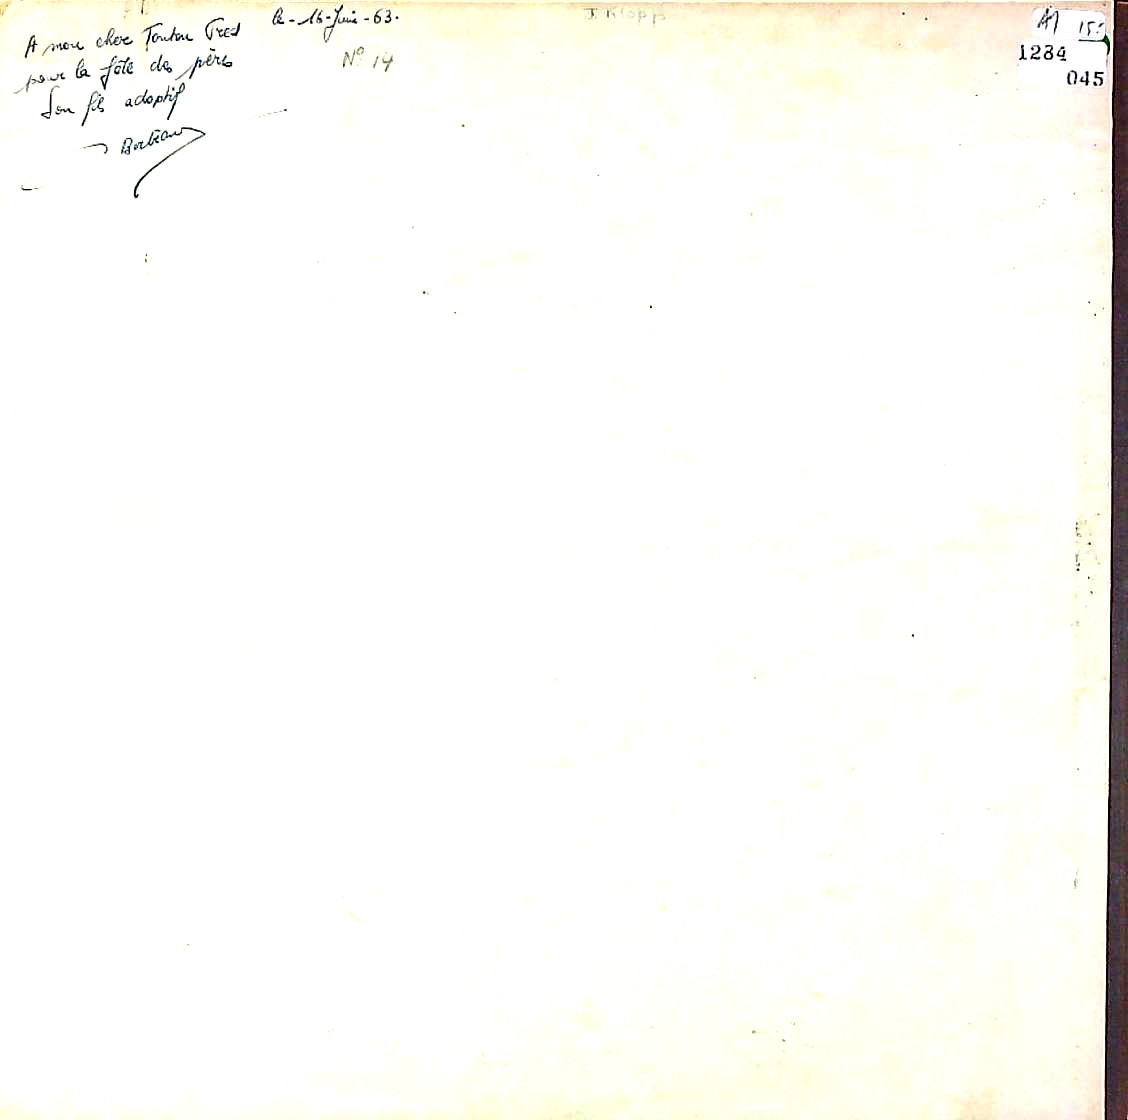 le - 16 - Juin - 63.
A mon cher Tonton Fred
pour la fête des pères
Son fils adoptif
Bertrand
N° 14
J. Klopp
A1 15:
1284
045